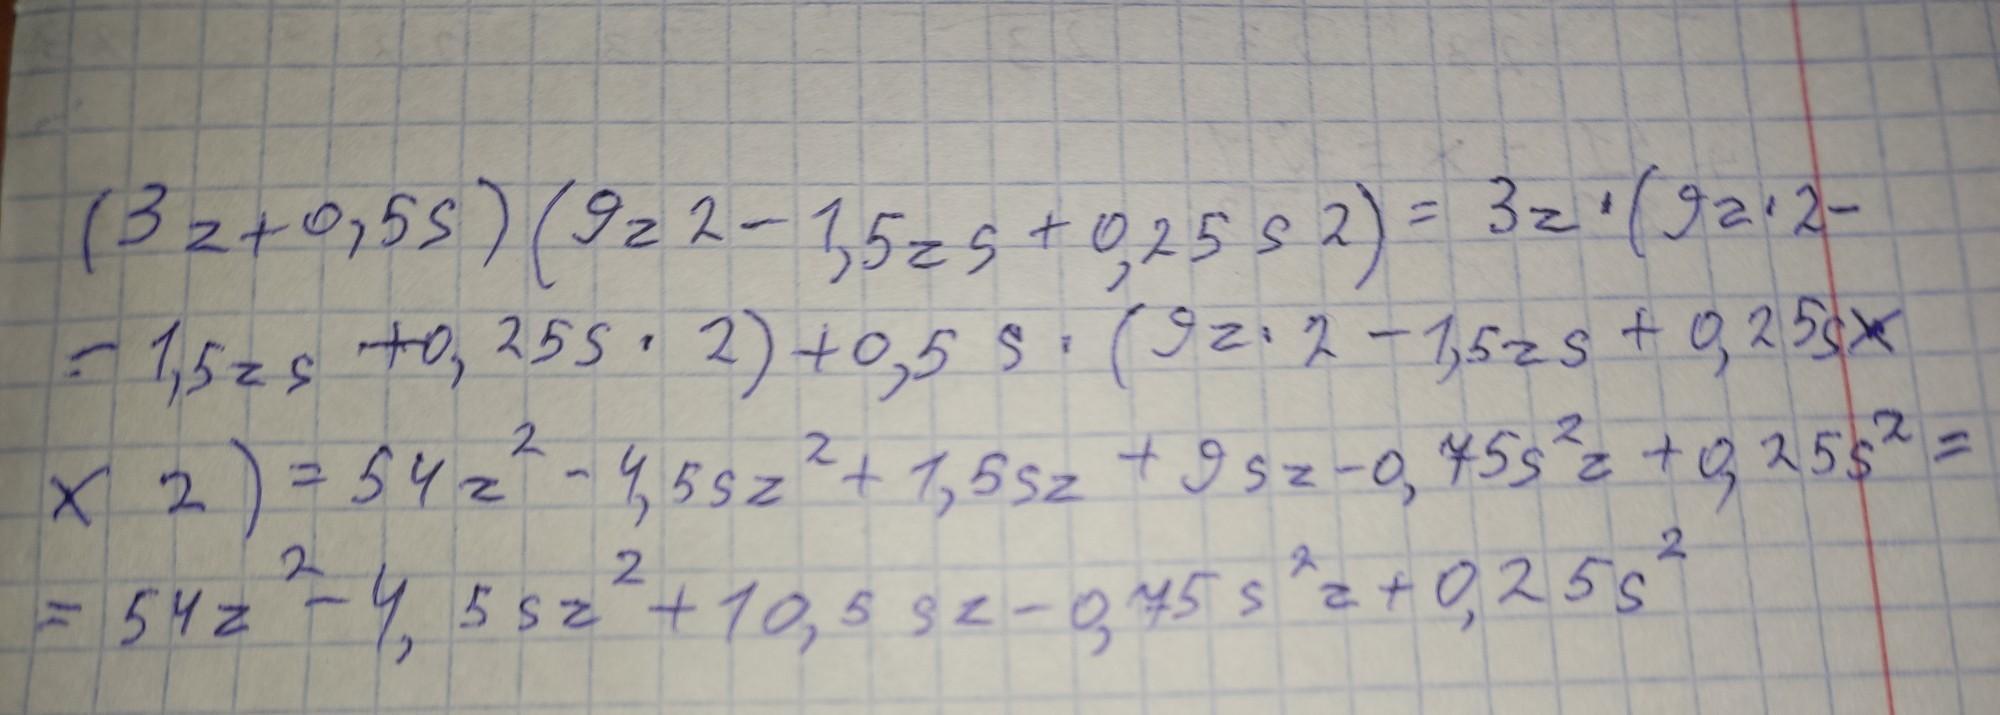 (3z+0,5s)(9z2-1,5zs+0,25s2)=3z·(9z·2-
-1,5zs+0,25s·2)+0,5s·(9z·2-1,5zs+0,25s×
×2)=54z²-4,5sz²+1,5sz+9sz-0,75s²z+0,25s²=
=54z²-4,5sz²+10,5sz-0,75s²z+0,25s²